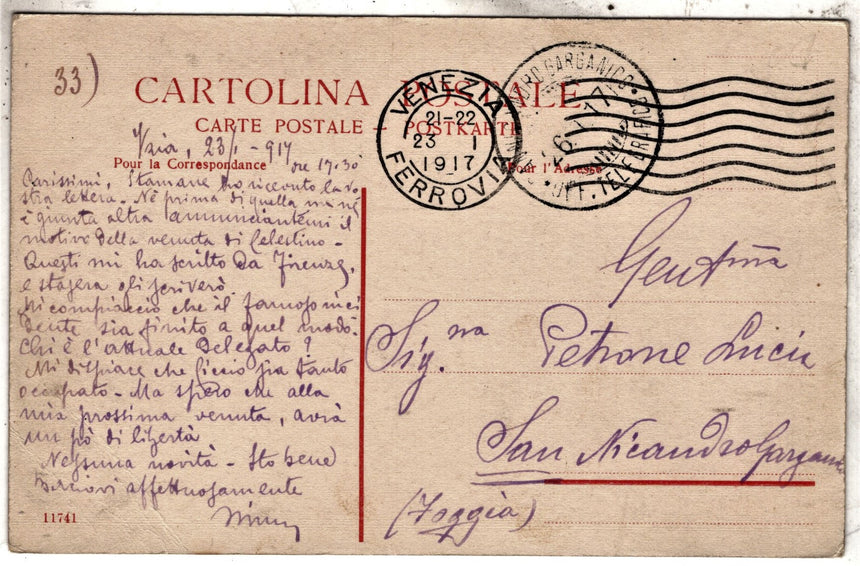 33)
CARTOLINA POSTALE
CARTE POSTALE – POSTKARTE
VENEZIA
21-22
23 I
1917
FERROVIA
GARGANICO
UFF. TELEGRAFICO
23/1 - 917
ore 17.30
Pour la Correspondance
Pour l'Adresse
Carissimi, Stamane ho ricevuto la vo
stra lettera. Nè prima di quella me nè
è giunta altra annunciantemi il
motivo della venuta di Celestino –
Questi mi ha scritto da Firenze,
e stasera gli scriverò.
Mi compiaccio che il famoso inci
dente sia finito a quel modo.
Chi è l'attuale Delegato?
Mi dispiace che Ciccio sia tanto
occupato. – Ma spero che alla
mia prossima venuta, avrà
un pò di libertà
Nessuna novità – Sto bene
Baciovi affettuosamente
11741
Gent.ma
Sig.na Petrone Lucia
San Nicandro Garganico
(Foggia)